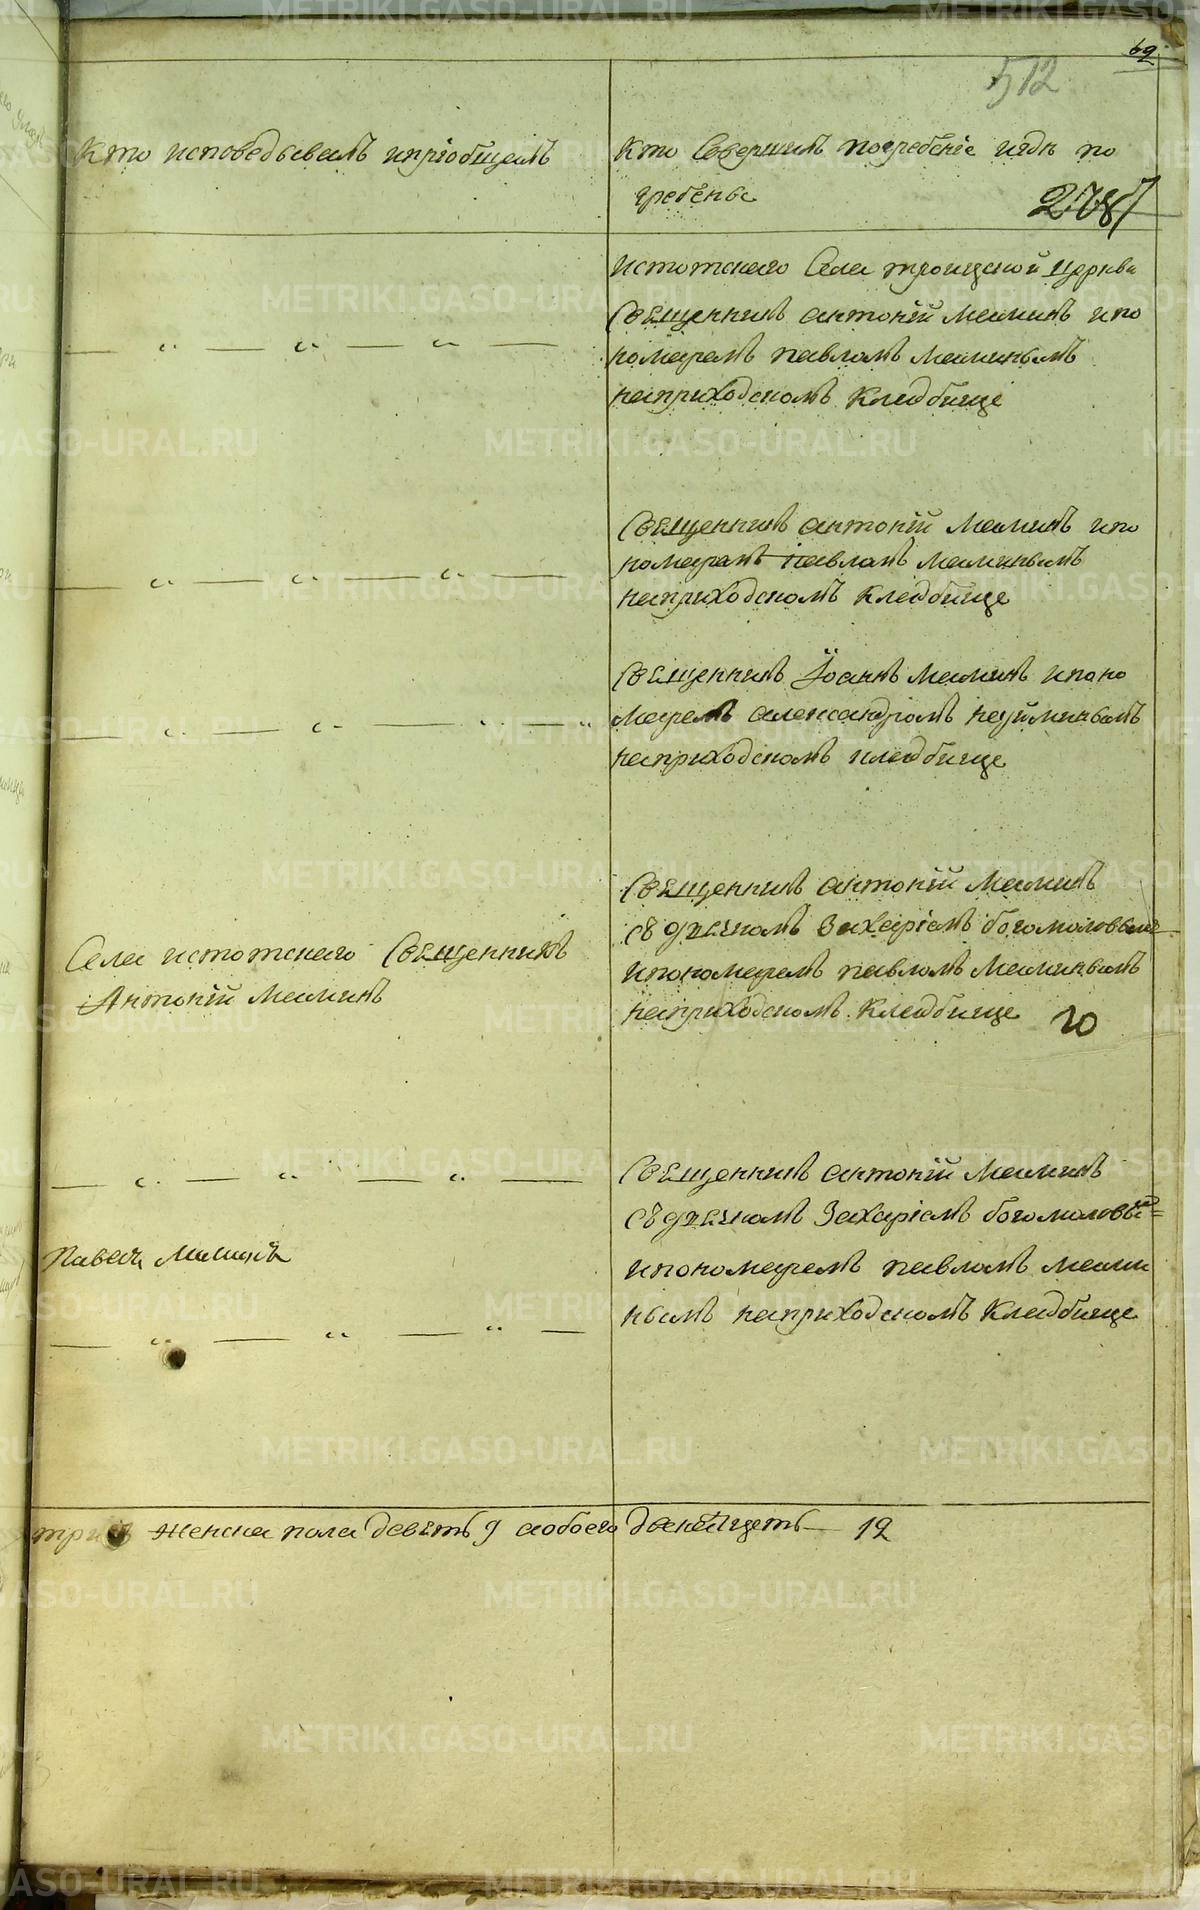 69.
512
Кто исповедывалъ и приобщалъ
Кто совершилъ погребенiе и гдѣ по
гребены
Истотскаго Села троицской церкви
Священникъ антонiй Маминъ и по
номаремъ павломъ Маминымъ
наприходскомъ кладбище
Священникъ антонiй Маминъ и по
номаремъ павломъ Маминымъ
наприходскомъ кладбище
Священникъ Iоаннъ Маминъ и поно
маремъ александромъ неуйминымъ
наприходскомъ кладбище
Села истотскаго Священникъ
Антонiй Маминъ
Священникъ антонiй Маминъ
съ дячкомъ Захарiемъ богомоловымъ
и пономаремъ павломъ Маминымъ
наприходскомъ кладбище 20
Священникъ антонiй Маминъ
съ дячкомъ Захарiемъ богомоловы=
и пономаремъ павломъ мами
нымъ наприходскомъ кладбище
Павелъ Маминъ
три женска пола девять 9 а обоего двенатцеть — 12
METRIKI.GASO-URAL.RU